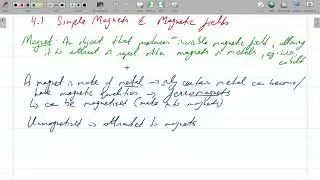 4.1 Simple Magnets & Magnetic fields
Magnet: An object that produces invisible magnetic field, allowing
it to attract or repel other magnets or metals, eg: iron,
cobalt
A magnet is made of metal → only certain metal can become/
have magnetic qualities → ferromagnets
↳ can be magnetised (make into magnets)
Unmagnetised → attracted to magnets